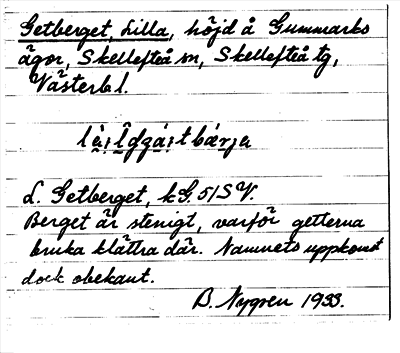 Getberget, Lilla, höjd å Gummarks
ägor, Skellefteå sn, Skellefteå tg,
Västerb l.
L. Getberget, k G. 51 S V.
Berget är stenigt, varför getterna
bruka klättra där. Namnets uppkomst
dock obekant.
B. Nygren 1933.